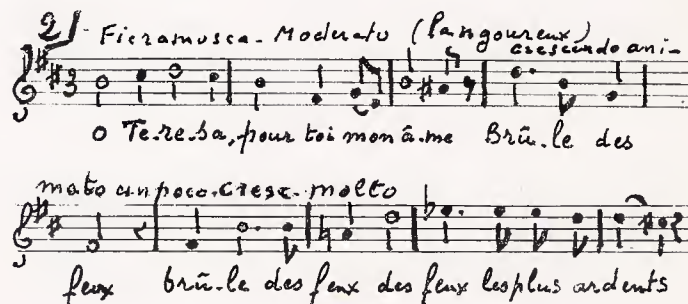 2/ Fieramosca - Moderato (langoureux)
crescendo ani-
3
2
o Te-re-sa, pour toi mon â-me Brû-le des
mato un poco. cresc. molto
feux brû-le des feux des feux les plus ardents